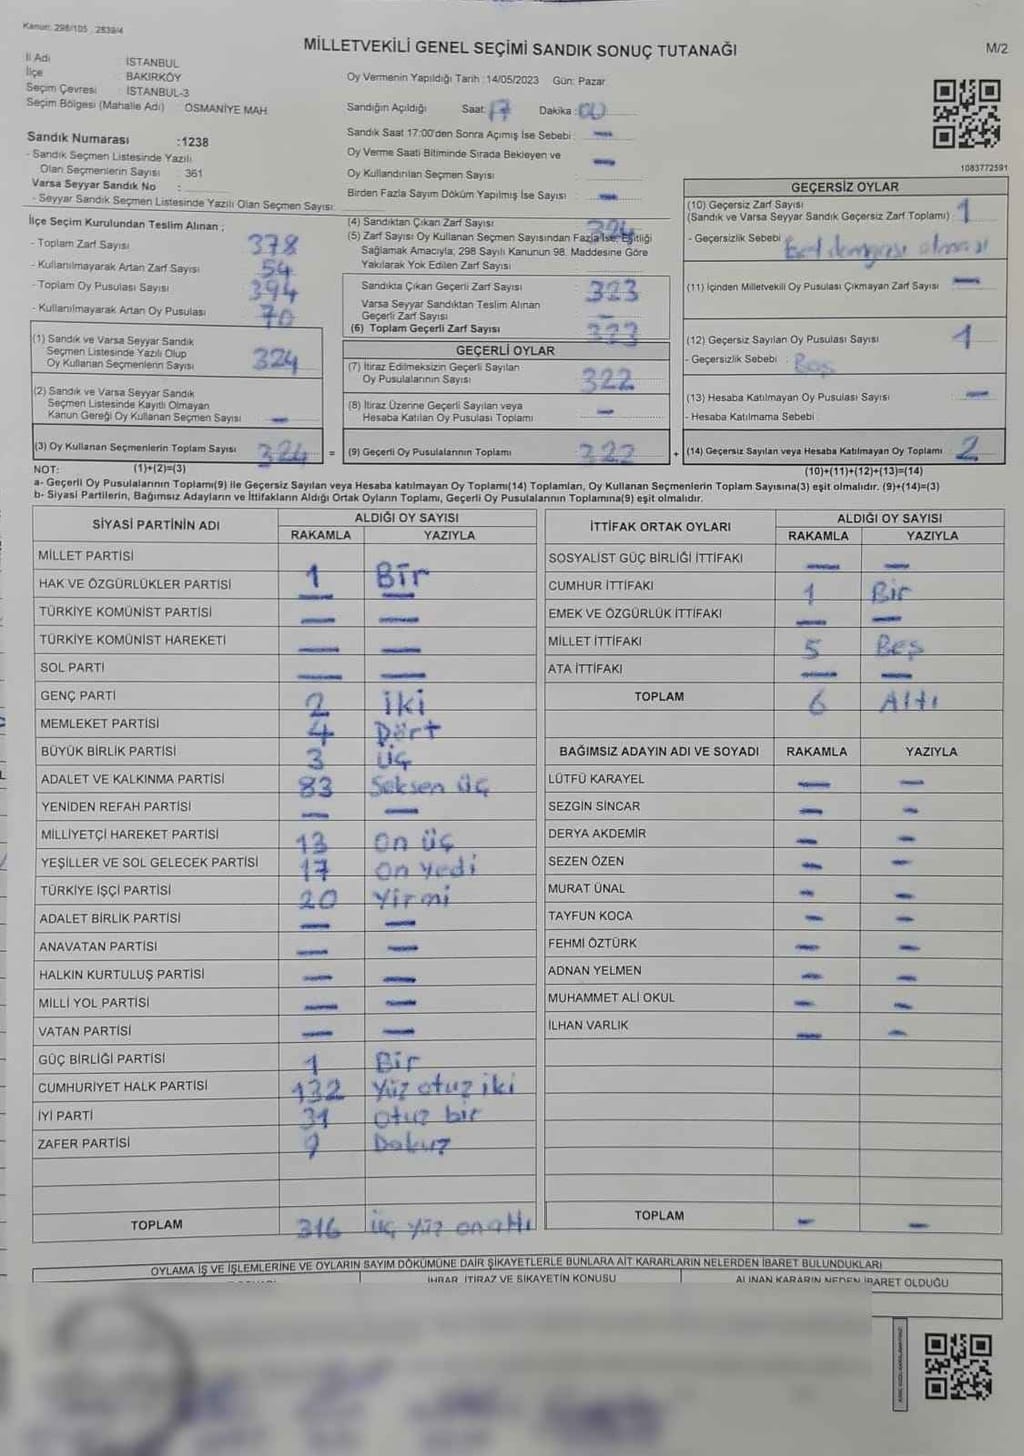 Kanun: 298/105 2839/4
MİLLETVEKİLİ GENEL SEÇİMİ SANDIK SONUÇ TUTANAĞI
M/2
İl Adı : İSTANBUL
İlçe : BAKIRKÖY
Seçim Çevresi : İSTANBUL-3
Seçim Bölgesi (Mahalle Adı) : OSMANİYE MAH.
Oy Vermenin Yapıldığı Tarih :14/05/2023 Gün: Pazar
Sandığın Açıldığı Saat: 17 Dakika :00
Sandık Saat 17:00'den Sonra Açımış İse Sebebi : —
Oy Verme Saati Bitiminde Sırada Bekleyen ve
Oy Kullandırılan Seçmen Sayısı : —
Birden Fazla Sayım Döküm Yapılmış İse Sayısı : —
Sandık Numarası :1238
- Sandık Seçmen Listesinde Yazılı
Olan Seçmenlerin Sayısı : 361
Varsa Seyyar Sandık No :
- Seyyar Sandık Seçmen Listesinde Yazılı Olan Seçmen Sayısı:
1083772591
İlçe Seçim Kurulundan Teslim Alınan ;
- Toplam Zarf Sayısı 378
- Kullanılmayarak Artan Zarf Sayısı 54
- Toplam Oy Pusulası Sayısı 394
- Kullanılmayarak Artan Oy Pusulası 70
(1) Sandık ve Varsa Seyyar Sandık
Seçmen Listesinde Yazılı Olup
Oy Kullanan Seçmenlerin Sayısı 324
(2) Sandık ve Varsa Seyyar Sandık
Seçmen Listesinde Kayıtlı Olmayan
Kanun Gereği Oy Kullanan Seçmen Sayısı —
(3) Oy Kullanan Seçmenlerin Toplam Sayısı 324 =
(4) Sandıktan Çıkan Zarf Sayısı 324
(5) Zarf Sayısı Oy Kullanan Seçmen Sayısından Fazla İse, Eşitliği
Sağlamak Amacıyla, 298 Sayılı Kanunun 98. Maddesine Göre
Yakılarak Yok Edilen Zarf Sayısı
Sandıkta Çıkan Geçerli Zarf Sayısı 323
Varsa Seyyar Sandıktan Teslim Alınan
Geçerli Zarf Sayısı —
(6) Toplam Geçerli Zarf Sayısı 323
GEÇERLİ OYLAR
(7) İtiraz Edilmeksizin Geçerli Sayılan
Oy Pusulalarının Sayısı 322
(8) İtiraz Üzerine Geçerli Sayılan veya
Hesaba Katılan Oy Pusulası Toplamı —
(9) Geçerli Oy Pusulalarının Toplamı 322 +
GEÇERSİZ OYLAR
(10) Geçersiz Zarf Sayısı
(Sandık ve Varsa Seyyar Sandık Geçersiz Zarf Toplamı) 1
- Geçersizlik Sebebi : olması
(11) İçinden Milletvekili Oy Pusulası Çıkmayan Zarf Sayısı —
(12) Geçersiz Sayılan Oy Pusulası Sayısı 1
- Geçersizlik Sebebi : Boş
(13) Hesaba Katılmayan Oy Pusulası Sayısı —
- Hesaba Katılmama Sebebi :
(14) Geçersiz Sayılan veya Hesaba Katılmayan Oy Toplamı 2
NOT: (1)+(2)=(3) (10)+(11)+(12)+(13)=(14)
a- Geçerli Oy Pusulalarının Toplamı(9) ile Geçersiz Sayılan veya Hesaba katılmayan Oy Toplamı(14) Toplamları, Oy Kullanan Seçmenlerin Toplam Sayısına(3) eşit olmalıdır. (9)+(14)=(3)
b- Siyasi Partilerin, Bağımsız Adayların ve İttifakların Aldığı Ortak Oyların Toplamı, Geçerli Oy Pusulalarının Toplamına(9) eşit olmalıdır.
SİYASİ PARTİNİN ADI ALDIĞI OY SAYISI
RAKAMLA YAZIYLA
MİLLET PARTİSİ 1 Bir
HAK VE ÖZGÜRLÜKLER PARTİSİ — —
TÜRKİYE KOMÜNİST PARTİSİ — —
TÜRKİYE KOMÜNİST HAREKETİ — —
SOL PARTİ — —
GENÇ PARTİ 2 iki
MEMLEKET PARTİSİ 4 Dört
BÜYÜK BİRLİK PARTİSİ 3 üç
ADALET VE KALKINMA PARTİSİ 83 Seksen üç
YENİDEN REFAH PARTİSİ — —
MİLLİYETÇİ HAREKET PARTİSİ 13 on üç
YEŞİLLER VE SOL GELECEK PARTİSİ 17 on yedi
TÜRKİYE İŞÇİ PARTİSİ 20 Yirmi
ADALET BİRLİK PARTİSİ — —
ANAVATAN PARTİSİ — —
HALKIN KURTULUŞ PARTİSİ — —
MİLLİ YOL PARTİSİ — —
VATAN PARTİSİ — —
GÜÇ BİRLİĞİ PARTİSİ 1 Bir
CUMHURİYET HALK PARTİSİ 132 Yüz otuz iki
İYİ PARTİ 31 otuz bir
ZAFER PARTİSİ 9 Dokuz
TOPLAM 316 üç yüz on altı
İTTİFAK ORTAK OYLARI ALDIĞI OY SAYISI
RAKAMLA YAZIYLA
SOSYALİST GÜÇ BİRLİĞİ İTTİFAKI — —
CUMHUR İTTİFAKI 1 Bir
EMEK VE ÖZGÜRLÜK İTTİFAKI — —
MİLLET İTTİFAKI 5 Beş
ATA İTTİFAKI — —
TOPLAM 6 Altı
BAĞIMSIZ ADAYIN ADI VE SOYADI RAKAMLA YAZIYLA
LÜTFÜ KARAYEL — —
SEZGİN SİNCAR — —
DERYA AKDEMİR — —
SEZEN ÖZEN — —
MURAT ÜNAL — —
TAYFUN KOCA — —
FEHMİ ÖZTÜRK — —
ADNAN YELMEN — —
MUHAMMET ALİ OKUL — —
İLHAN VARLIK — —
TOPLAM — —
OYLAMA İŞ VE İŞLEMLERİNE VE OYLARIN SAYIM DÖKÜMÜNE DAİR ŞİKAYETLERLE BUNLARA AİT KARARLARIN NELERDEN İBARET BULUNDUKLARI
İHBAR, İTİRAZ VE ŞİKAYETİN KONUSU
ALINAN KARARIN NEDEN İBARET OLDUĞU